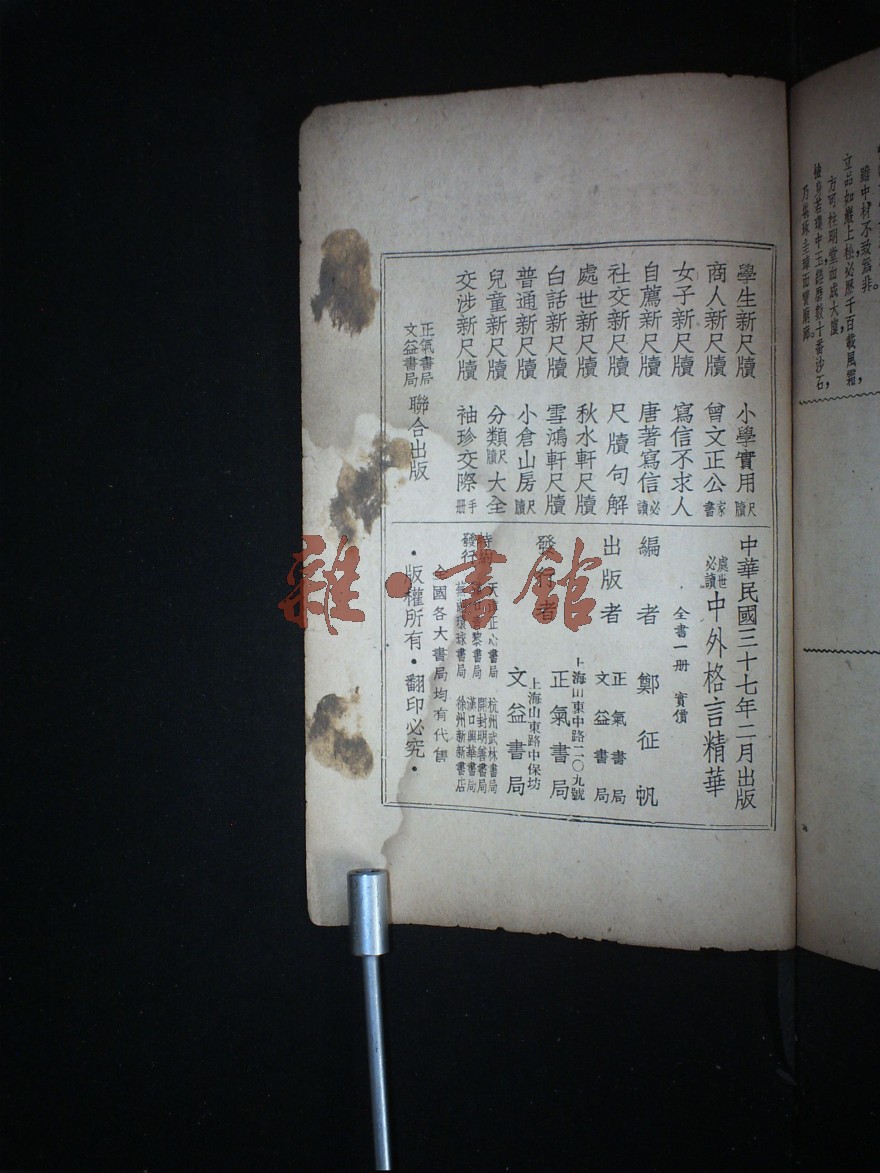 立品如巖上松必歷千百載風霜，
方可柱明堂而成大廈
檢身若璞中玉經磨數十番沙石，
學生新尺牘 小學實用尺牘
商人新尺牘 曾文正公家書
女子新尺牘 寫信不求人
自薦新尺牘 唐著寫信必讀
社交新尺牘 尺牘句解
處世新尺牘 秋水軒尺牘
白話新尺牘 雪鴻軒尺牘
普通新尺牘 小倉山房尺牘
兒童新尺牘 分類尺牘大全
交涉新尺牘 袖珍交際手冊
正氣書局
文益書局
聯合出版
中華民國三十七年二月出版
處世必讀 中外格言精華
全書一册 實價
編者 鄭征帆
出版者 正氣書局
文益書局
發行者
上海山東中路二〇九號
正氣書局
上海山東路中保坊
文益書局
特約發行
天津正心書局 杭州武林書局
開封明善書局
環球書局 漢口興華書局
徐州新新書店
全國各大書局均有代售
·版權所有·翻印必究·
雜·書館